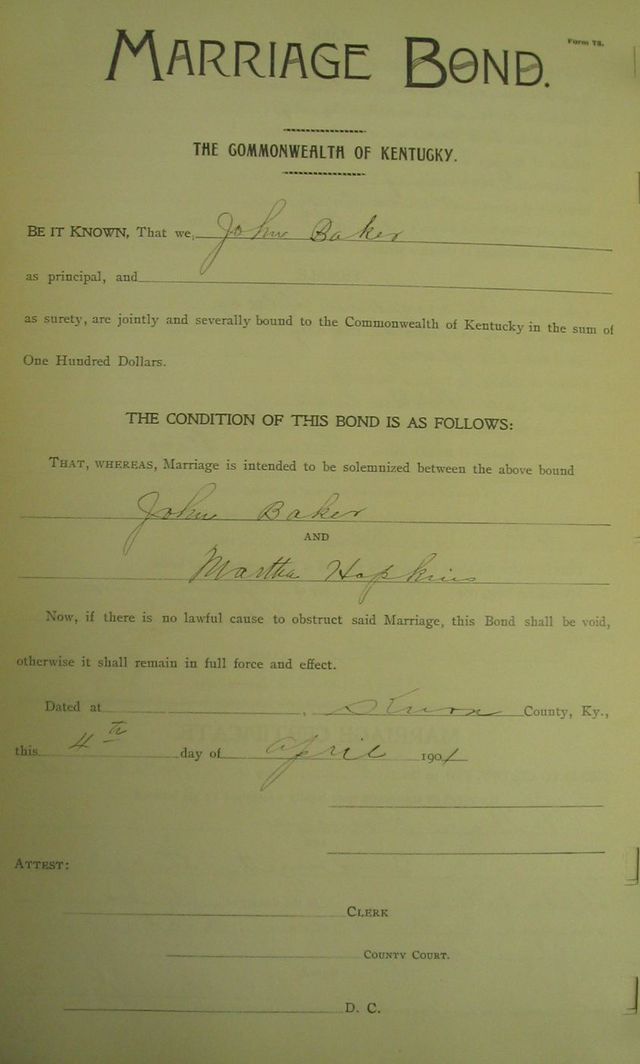 Form 78.
MARRIAGE BOND.
THE COMMONWEALTH OF KENTUCKY.
BE IT KNOWN, That we, John Baker
as principal, and
as surety, are jointly and severally bound to the Commonwealth of Kentucky in the sum of
One Hundred Dollars.
THE CONDITION OF THIS BOND IS AS FOLLOWS:
THAT, WHEREAS, Marriage is intended to be solemnized between the above bound
John Baker
AND
Martha Hopkins
Now, if there is no lawful cause to obstruct said Marriage, this Bond shall be void,
otherwise it shall remain in full force and effect.
Dated at , Knox County, Ky.,
this 4th day of April 1901
ATTEST:
CLERK
COUNTY COURT.
D. C.